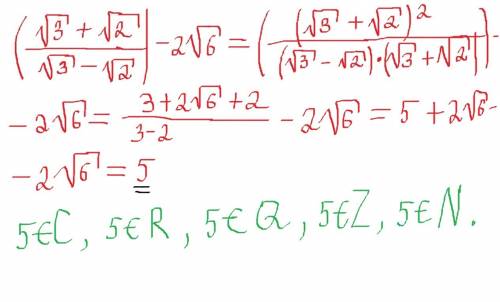 (√3 + √2 / √3 - √2) - 2√6 = ((√3 + √2)² / (√3 - √2)·(√3 + √2)) -
- 2√6 = 3 + 2√6 + 2 / 3 - 2 - 2√6 = 5 + 2√6 -
- 2√6 = 5
5∈C, 5∈R, 5∈Q, 5∈Z, 5∈N.